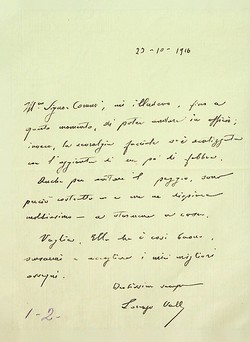 23-10-1916
Ill.mo Signor Connes', mi illudevo, fino a
questo momento, di poter andare in ufficio;
invece, la nevralgia facciale s'è analizzata
con l'aggiunta di un po' di febbre.
Anche per evitare il peggio, sono
perciò costretto - e me ne dispiace
moltissimo - a starmene a casa.
Voglia, Ella che è così buono,
scusarmi e accogliere i miei migliori
ossequi.
Devotissimo sempre
Lorenzo
1-2-